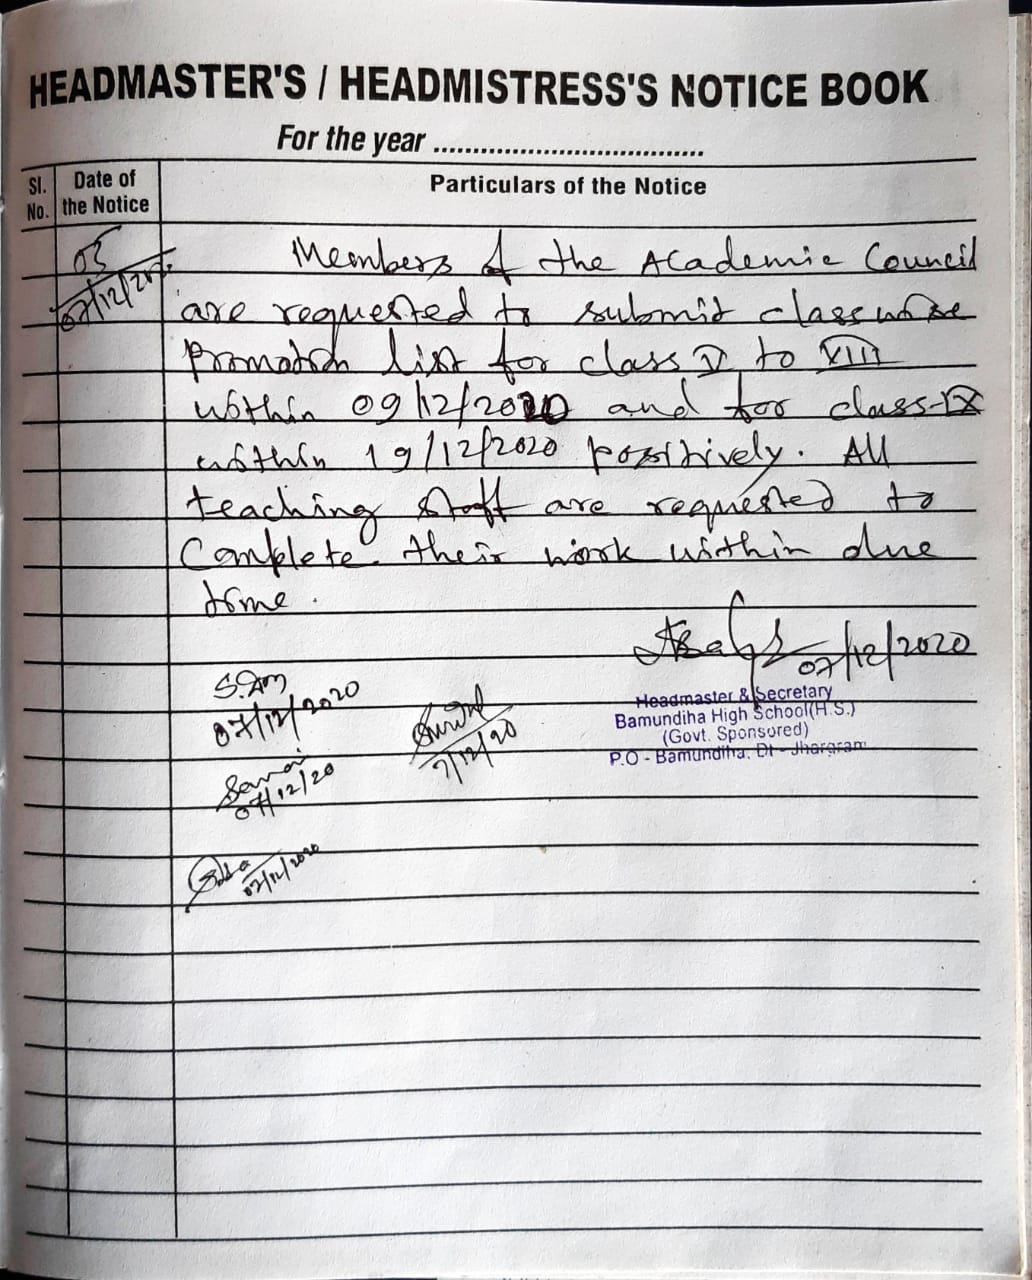 HEADMASTER'S / HEADMISTRESS'S NOTICE BOOK
For the year ..................................
Sl. No.
Date of the Notice
Particulars of the Notice
05
07/12/20
Members of the Academic Council
are requested to submit classwise
promotion list for class V to VIII
within 09/12/2020 and for class-IX
within 19/12/2020 positively. All
teaching staff are requested to
Complete their work within due
time.
07/12/2020
Headmaster & Secretary
Bamundiha High School(H.S.)
(Govt. Sponsored)
P.O - Bamundiha, Dt - Jhargram
07/12/2020
7/12/20
07/12/20
07/12/2020